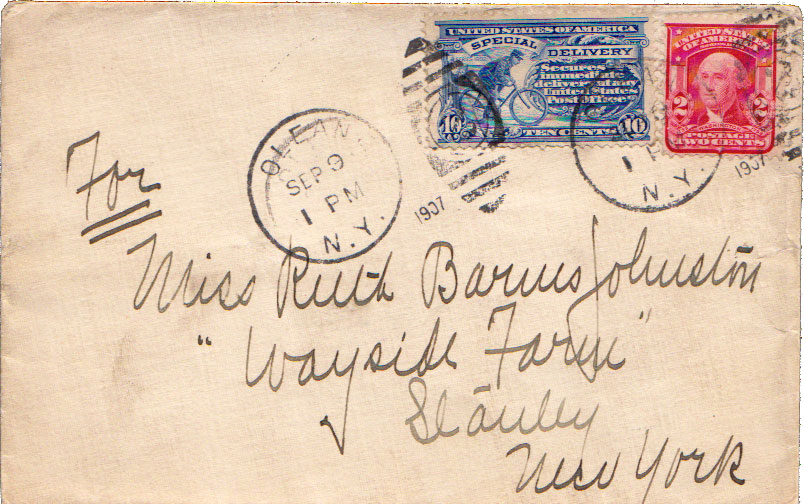 UNITED STATES OF AMERICA
SPECIAL DELIVERY
Secures
immediate
delivery at any
United States
Post Office.
10 TEN CENTS 10
UNITED STATES
OF AMERICA
2 2
POSTAGE
TWO CENTS
OLEAN,
SEP 9
1 PM
N.Y.
1907
1 P
N.Y.
1907
For
Miss Ruth Barnes Johnston
"Wayside Farm"
Stanley
New York